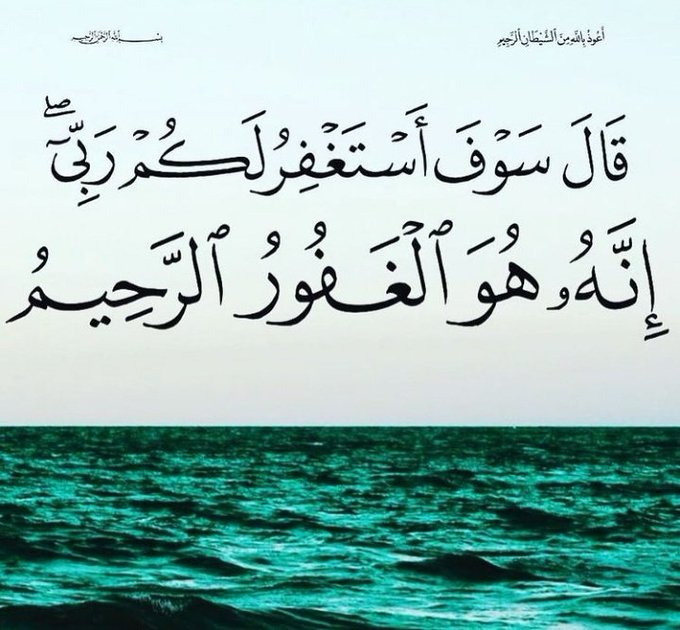 أَعُوذُ بِاللَّهِ مِنَ ٱلشَّيْطَانِ ٱلرَّجِيمِ
بِسْمِ ٱللَّهِ ٱلرَّحْمَٰنِ ٱلرَّحِيمِ
قَالَ سَوْفَ أَسْتَغْفِرُ لَكُمْ رَبِّىٓ ۖ
إِنَّهُۥ هُوَ ٱلْغَفُورُ ٱلرَّحِيمُ